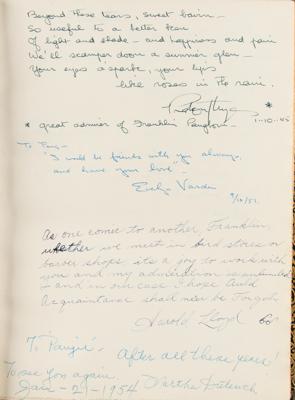 Beyond these tears, sweet bairn —
So useful to a better ken
Of light and shade — and happiness and pain
We'll scamper down a summer glen —
Your eyes a-sparkle, your lips
like roses in the rain.
*
1-10-45
* great admirer of Franklin Pangborn —
To Pang —
"I would be friends with you always,
and have your love" —
Evelyn Varden
9/12/51.
As one comic to another, Franklin,
whether we meet in bird stores or
barber shops its a joy to work with
you and my admiration is unbounded
— and in our case I hope Auld
Acquaintance shall never be Forgot
Harold Lloyd
To "Pangie" — After all these years!
To see you again.
Jan - 21 - 1954 Martha